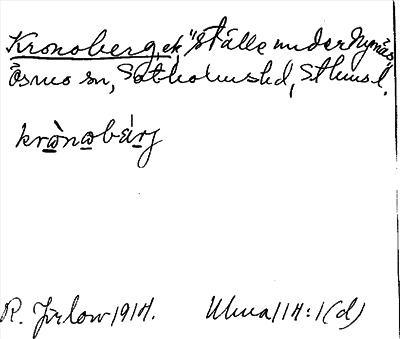 Kronoberg, ek, "ställe under Nynäs",
Ösmo sn, Sotholms hd, Sthms l.
krònobǽrj
R. Jirlow 1914. Ulma 114:1(d)